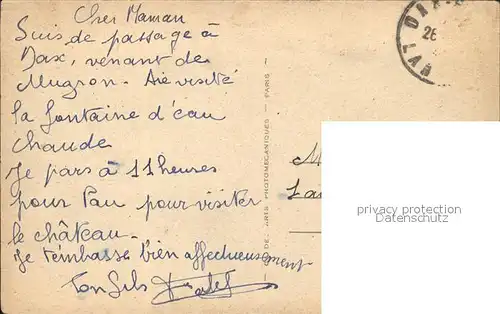 Cher Maman
Suis de passage à
Dax, venant de
Mugron. Aie visité
la fontaine d'eau
chaude
Je pars à 11 heures
pour Pau pour visiter
le château.
Je t'embrasse bien affectueusement
Ton fils
DE ARTS PHOTOMECANIQUES PARIS
26
M
privacy protection
Datenschutz